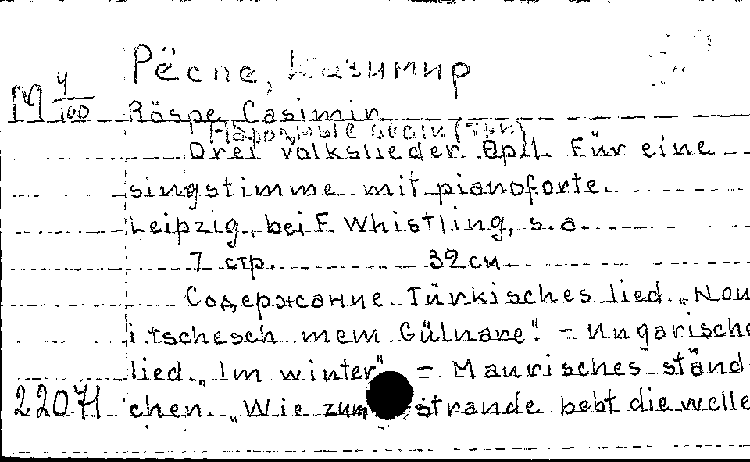 Рёспе, Казимир
М 4/100 Röspe, Casimir
Народные песни
Drei volkslieder. Op11. Für eine
singstimme mit pianoforte.
Leipzig, bei F. Whistling, s.a.
7 стр. 32 см.
Содержание. Türkisches lied. „Nou
itschesch mem Gülnare". – Ungarische
lied „Im winter" – Maurisches ständ
22071 chen. „Wie zum strande bebt die welle